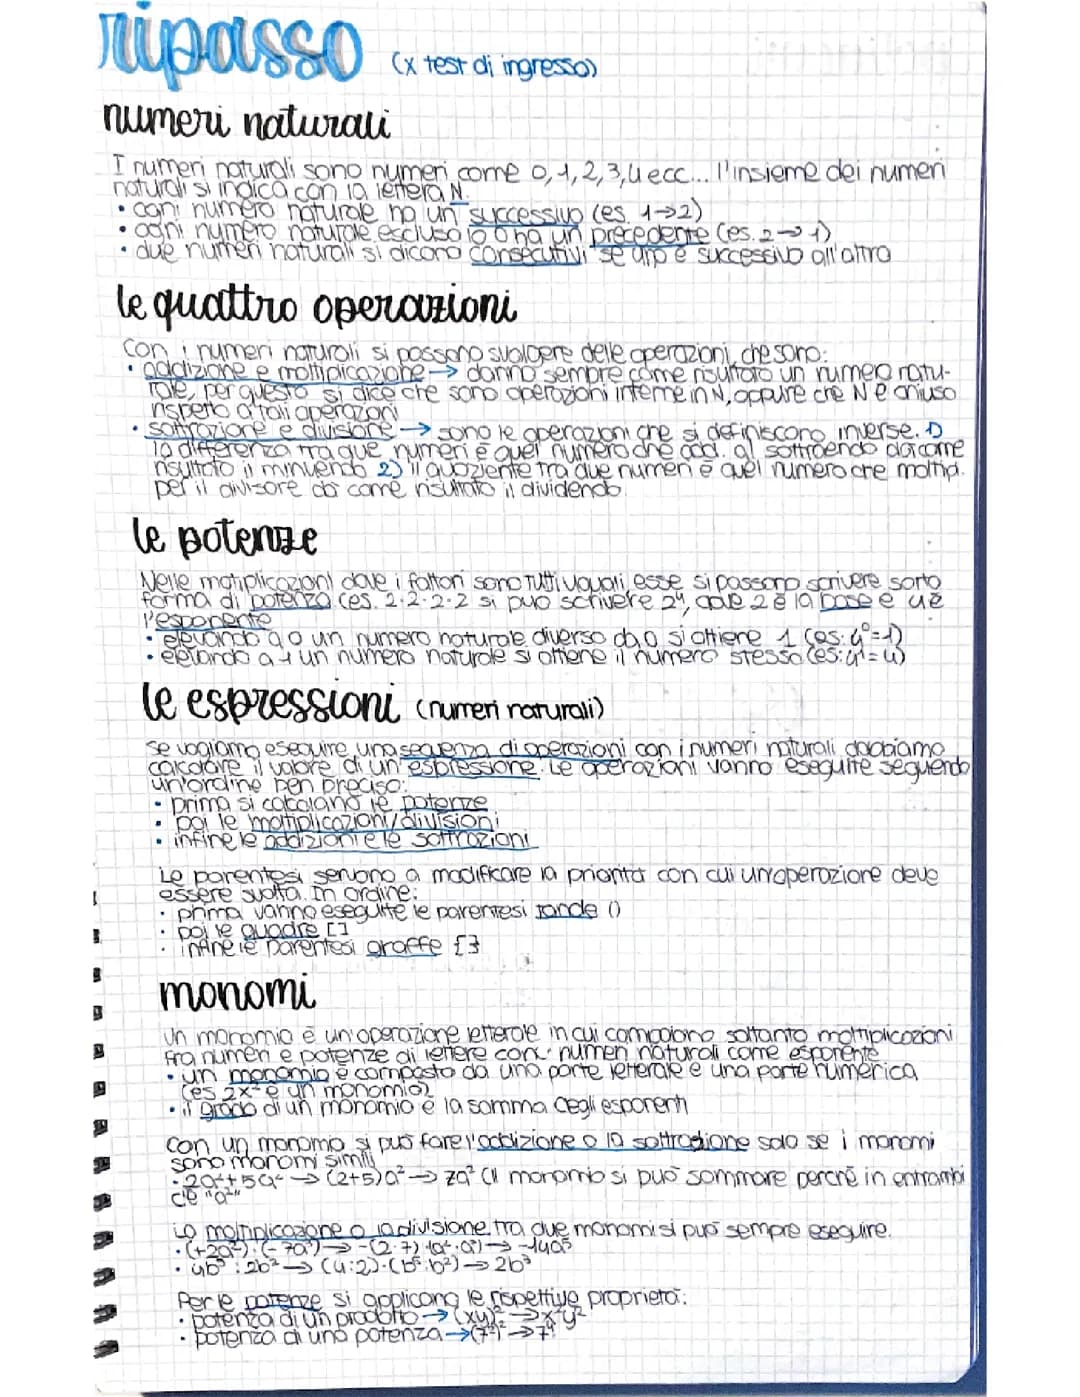 ripasso (x test di ingresso)
numeri naturali
I numeri naturali sono numeri come 0,1,2,3,4 ecc... l'insieme dei numeri
naturali si indica con la lettera N.
• ogni numero naturale ha un successivo (es. 1→2)
• ogni numero naturale escluso lo 0 ha un precedente (es. 2→1)
• due numeri naturali si dicono consecutivi se uno è successivo all'altro
le quattro operazioni
Con i numeri naturali si possono svolgere delle operazioni, che sono:
• addizione e moltiplicazione → danno sempre come risultato un numero natu-
rale, per questo si dice che sono operazioni interne in N, oppure che N è chiuso
rispetto a tali operazioni
• sottrazione e divisione → sono le operazioni che si definiscono inverse. 1)
la differenza tra due numeri è quel numero che add. al sottraendo dà come
risultato il minuendo 2) il quoziente tra due numeri è quel numero che moltip.
per il divisore dà come risultato il dividendo.
le potenze
Nelle moltiplicazioni dove i fattori sono tutti uguali, esse si possono scrivere sotto
forma di potenza (es. 2·2·2·2 si può scrivere 2⁴, dove 2 è la base e 4 è
l'esponente
• elevando a 0 un numero naturale diverso da 0 si ottiene 1 (es: 4⁰=1)
• elevando a 1 un numero naturale si ottiene il numero stesso (es: 4¹=4)
le espressioni (numeri naturali)
Se vogliamo eseguire una sequenza di operazioni con i numeri naturali dobbiamo
calcolare il valore di un'espressione. Le operazioni vanno eseguite seguendo
un'ordine ben preciso:
• prima si calcolano le potenze
• poi le moltiplicazioni/divisioni
• infine le addizioni e le sottrazioni
Le parentesi servono a modificare la priorità con cui un'operazione deve
essere svolta. In ordine:
• prima vanno eseguite le parentesi tonde ()
• poi le quadre []
• infine le parentesi graffe {}
monomi
Un monomio è un'operazione letterale in cui compaiono soltanto moltiplicazioni
fra numeri e potenze di lettere con numeri naturali come esponente
• un monomio è composto da una parte letterale e una parte numerica
(es 2x² è un monomio)
• il grado di un monomio è la somma degli esponenti
Con un monomio si può fare l'addizione o la sottrazione solo se i monomi
sono monomi simili
• 2a²+5a² → (2+5)a² → 7a² (il monomio si può sommare perché in entrambi
c'è "a²"
La moltiplicazione o la divisione tra due monomi si può sempre eseguire.
• (+2a²)·(-7a³) → -(2·7)·(a²·a³) → -14a⁵
• 4b⁵:2b² → (4:2)·(b⁵:b²) → 2b³
Per le potenze si applicano le rispettive proprietà:
• potenza di un prodotto → (xy)² → x²y²
• potenza di una potenza → (7²)² → 7⁴